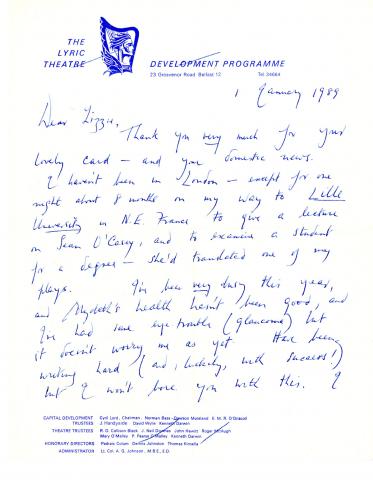 THE
LYRIC
THEATRE
DEVELOPMENT PROGRAMME
23 Grosvenor Road Belfast 12 Tel 34664
1 January 1989
Dear Lizzie,
Thank you very much for your
lovely card – and your domestic news.
I haven't been in London – except for one
night about 8 months on my way to Lille
University in N.E. France to give a lecture
on Sean O'Casey, and to examine a student
for a degree – she'd translated one of my
plays. I've been very busy this year,
and health hasn't been good, and
I've had some eye trouble (glaucoma) but
it doesn't worry me as yet. Have been
writing hard (and, luckily, with success!)
but I won't bore you with this. I
CAPITAL DEVELOPMENT Cyril Lord, Chairman, Norman Bass Dawson Moreland E. M. R. O'Driscoll
TRUSTEES J. Handyside David Wylie Kenneth Darwin
THEATRE TRUSTEES R. G. Calisson Black J. Neil Downes John Hewitt Roger McHugh
Mary O'Malley P. Pearse O'Malley Kenneth Darwin
HONORARY DIRECTORS Padraic Colum Denis Johnston Thomas Kinsella
ADMINISTRATOR Lt. Col. A. G. Johnson, M.B.E., E.D.